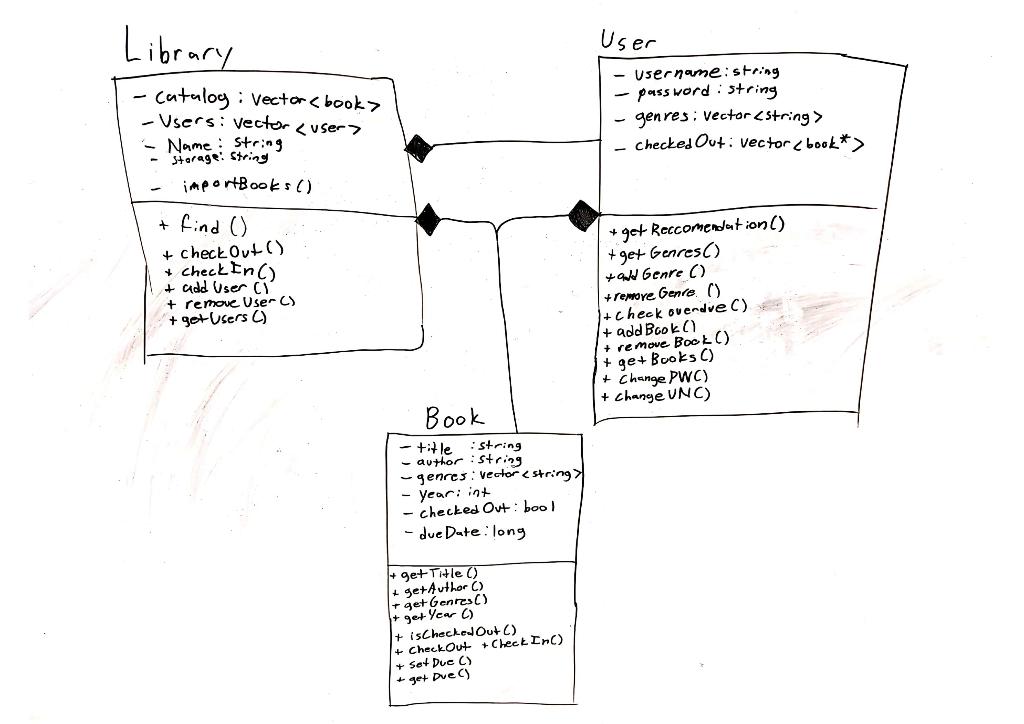 Library
- catalog : vector<book>
- Users : vector<user>
- Name : string
- storage: string
- importBooks()
+ find ()
+ checkOut()
+ checkIn()
+ add User ()
+ remove User()
+ getUsers()
User
- username : string
- password : string
- genres : vector<string>
- checkedOut : vector<book*>
+ get Reccomendation()
+ get Genres()
+ add Genre ()
+ remove Genre ()
+ check overdue()
+ add Book()
+ remove Book()
+ get Books()
+ change PW()
+ change UN()
Book
- title : string
- author : string
- genres : vector<string>
- year : int
- checkedOut : bool
- dueDate : long
+ getTitle()
+ getAuthor()
+ getGenres()
+ getYear ()
+ isCheckedOut()
+ checkOut + CheckIn()
+ set Due ()
+ get Due()